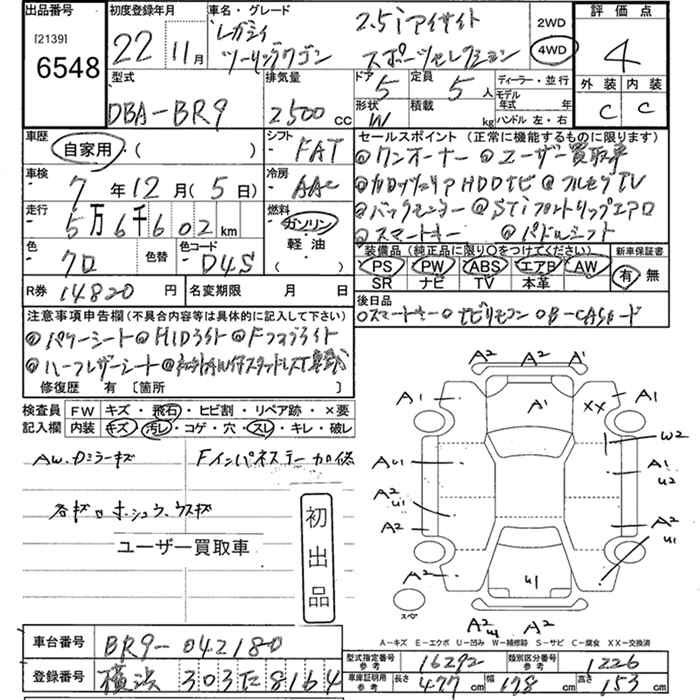 出品番号 [2139] 6548
初度登録年月 22年 11月
車名・グレード レガシィ ツーリングワゴン 2.5i アイサイト スポーツセレクション
2WD 4WD
評価点 4
外装 C 内装 C
型式 DBA-BR9
排気量 2500 cc
ドア 5 定員 5人
形状 W 積載 kg
ディーラー・並行
モデル年式 年式
ハンドル 左・右
車歴 自家用・( )
シフト FAT
車検 7年12月(5日)
冷房 AAC
走行 5万6千602 km
燃料 ガソリン 軽油 ( )
色 クロ 色替 色コード D4S
R券 14820円 名変期限 月 日
セールスポイント(正常に機能するものに限ります)
◎ワンオーナー ◎ユーザー買取車
HDDナビ ◎フルセグTV
◎バックモニター ◎STiフロントリップエアロ
◎スマートキー ◎パドルシフト
装備品(純正品に限り○をつけてください)
PS PW ABS エアB AW
SR ナビ TV 本革
新車保証書 有 無
後日品
○スマートキー○ナビリモコン○B-CASカード
注意事項申告欄(不具合内容等は具体的に記入して下さい)
◎パワーシート◎HIDライト◎Fフォグライト
◎ハーフレザーシート
修復歴 有 [箇所 ]
検査員 FW キズ・飛石・ヒビ割・リペア跡・×要
記入欄 内装 キズ・汚レ・コゲ・穴・スレ・キレ・破レ
AW.Dミラーキズ Fインパネステー加修
ユーザー買取車
初出品
A2 A2 A1
A1 A1 XX A1
W2
AU1 A1 U2
A2 U1
A2 A2 U1
A2 U1 A2
スペ
A2 U1 A2
A−キズ E−エクボ U−凹み W−補修跡 S−サビ C−腐食 XX−交換済
車台番号 BR9-042180
登録番号 横浜 303 た 8164
型式指定番号 参考 16292 類別区分番号 参考 1226
車庫証明用 参考 長さ 477 cm 幅 178 cm 高さ 153 cm